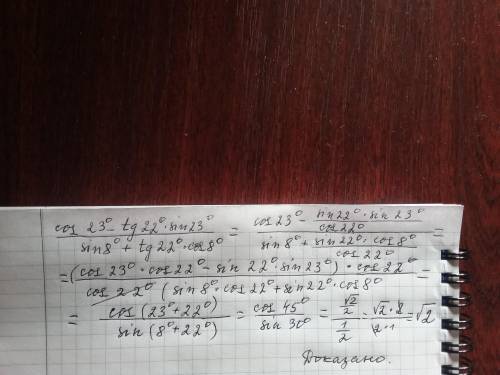 (cos 23° - tg 22° · sin 23°) / (sin 8° + tg 22° · cos 8°) = (cos 23° - (sin 22° · sin 23°) / (cos 22°)) / (sin 8° + (sin 22° · cos 8°) / (cos 22°)) =
= ((cos 23° · cos 22° - sin 22° · sin 23°) · cos 22°) / (cos 22° (sin 8° · cos 22° + sin 22° · cos 8°) =
= (cos (23° + 22°)) / (sin (8° + 22°)) = (cos 45°) / (sin 30°) = (√2/2) / (1/2) = (√2 · 2) / (2 · 1) = √2
Доказано.